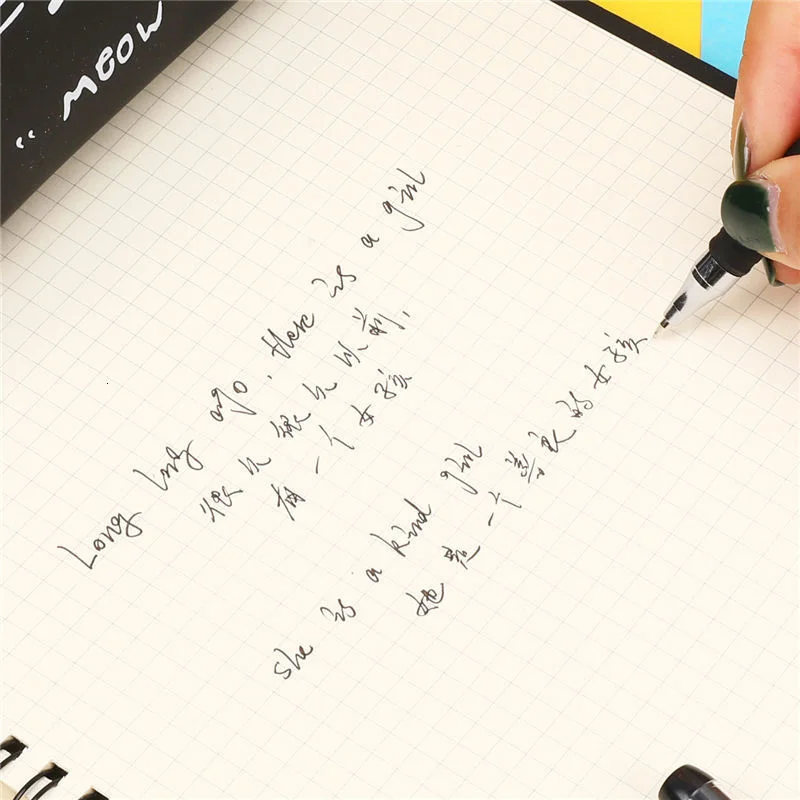 " MEOW
Long long ago, there is a girl
很久很久以前,
有一个女孩
she is a kind girl
她是一个善良的女孩